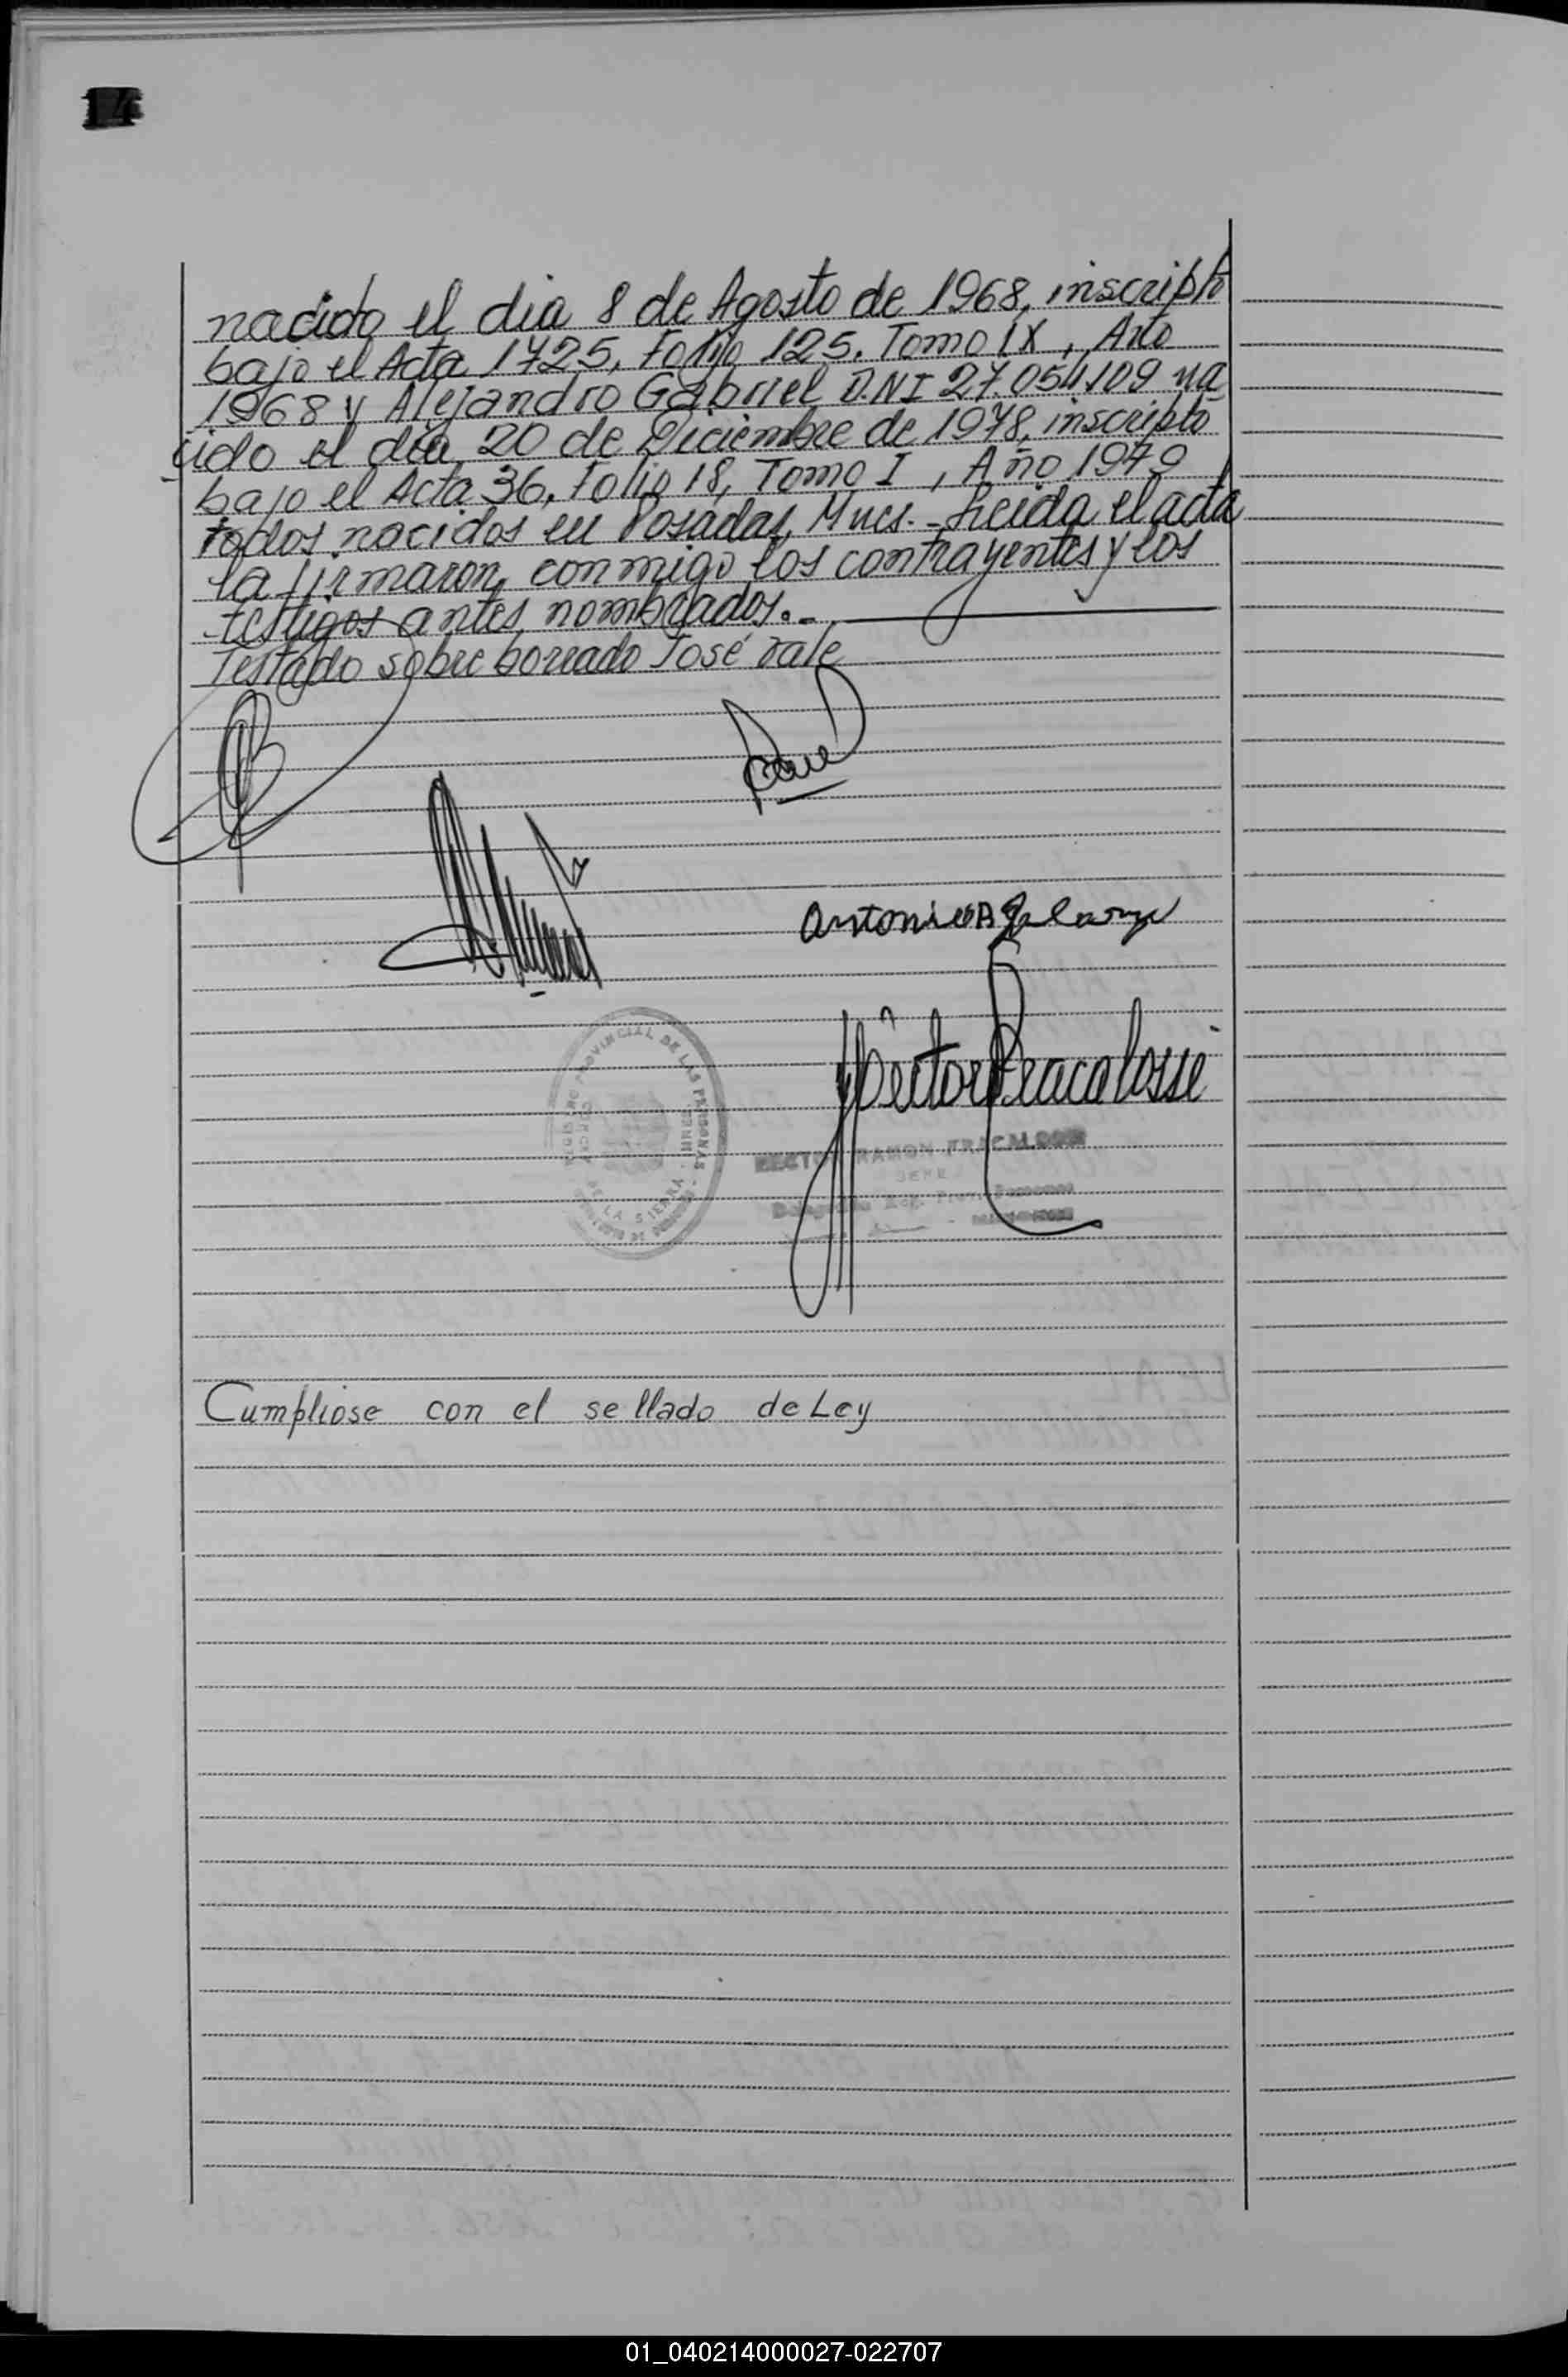 14
nacido el dia 8 de Agosto de 1968, inscripto
bajo el Acta 1725, Folio 125. Tomo IX, Año
1968 y Alejandro Gabriel D.NI 27.054.109 na
cido el dia 20 de Diciembre de 1978, inscripto
bajo el Acta 36, Folio 18, Tomo I, Año 1979
todos nacidos en Posadas, Mnes.- Leida el acta
la firmaron conmigo los contrayentes y los
testigos antes nombrados.-
Testado sobre borreado José Vale
Antonio A
Hector Fracalossi
REGISTRO PROVINCIAL DE LAS PERSONAS
DE LA SIERRA - MNES
HECTOR RAMON FRACALOSSI
JEFE
Cumpliose con el sellado de Ley
01_040214000027-022707